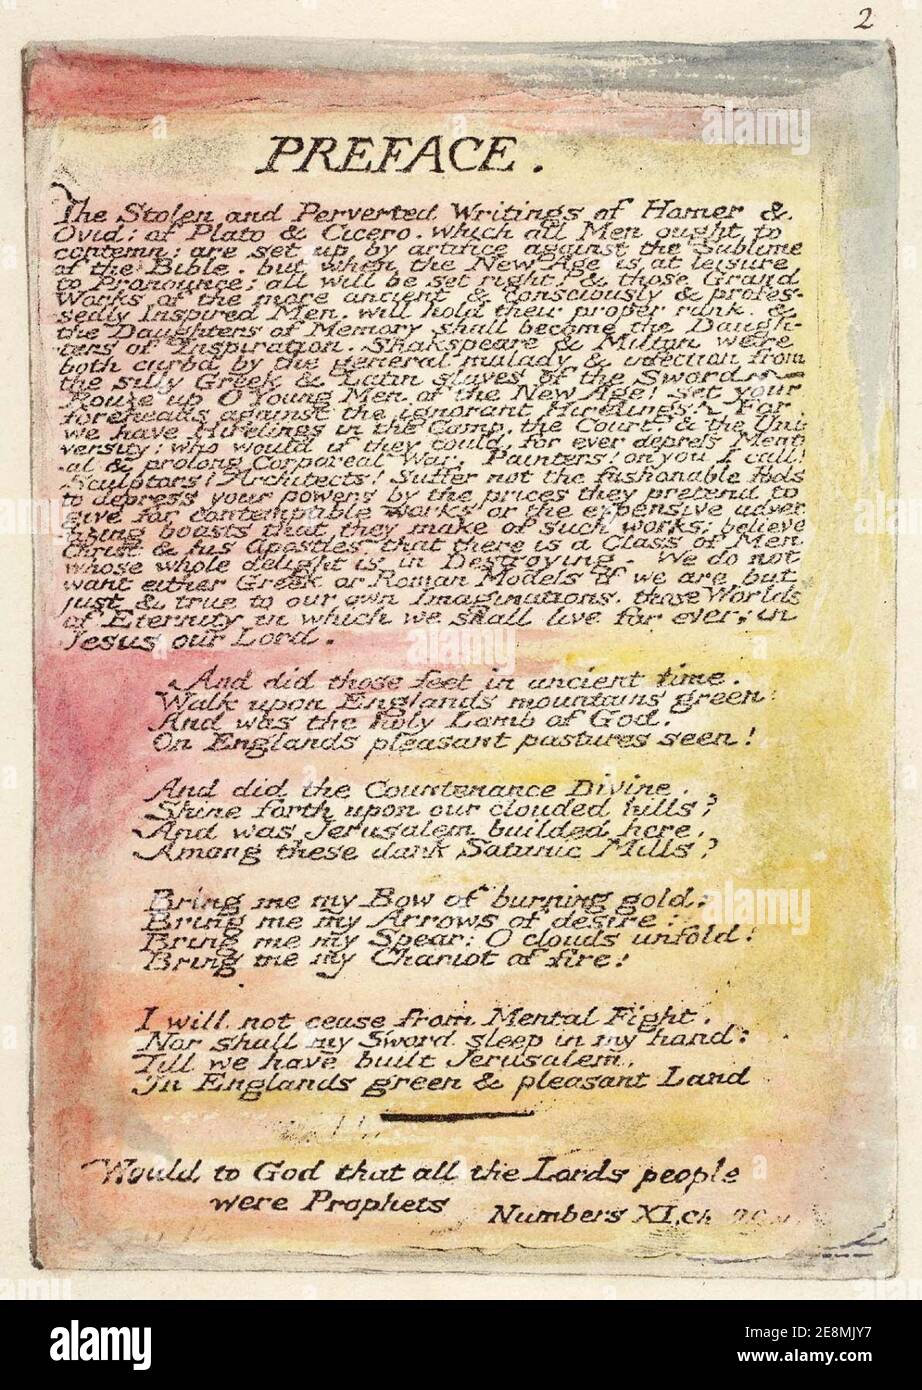 2
PREFACE.
The Stolen and Perverted Writings of Homer &
Ovid: of Plato & Cicero. which all Men ought to
contemn: are set up by artifice against the Sublime
of the Bible. but when the New Age is at leisure
to Pronounce; all will be set right: & those Grand
Works of the more ancient & consciously & profes-
sedly Inspired Men. will hold their proper rank. &
the Daughters of Memory shall become the Daugh-
ters of Inspiration. Shakspeare & Milton were
both curbd by the general malady & infection from
the silly Greek & Latin slaves of the Sword.
Rouze up O Young Men of the New Age! set your
foreheads against the ignorant Hirelings! For
we have Hirelings in the Camp, the Court, & the Uni
versity: who would if they could, for ever depress Ment
al & prolong Corporeal War. Painters! on you I call!
Sculptors! Architects! Suffer not the fashonable Fools
to depress your powers by the prices they pretend to
give for contemptible works or the expensive adver
tizing boasts that they make of such works; believe
Christ & his Apostles that there is a Class of Men
whose whole delight is in Destroying. We do not
want either Greek or Roman Models if we are but
just & true to our own Imaginations, those Worlds
of Eternity in which we shall live for ever; in
Jesus our Lord.
And did those feet in ancient time.
Walk upon Englands mountains green:
And was the holy Lamb of God.
On Englands pleasant pastures seen!
And did the Countenance Divine.
Shine forth upon our clouded hills?
And was Jerusalem builded here,
Among these dark Satanic Mills?
Bring me my Bow of burning gold:
Bring me my Arrows of desire:
Bring me my Spear: O clouds unfold!
Bring me my Chariot of fire!
I will not cease from Mental Fight.
Nor shall my Sword sleep in my hand:
Till we have built Jerusalem.
In Englands green & pleasant Land
Would to God that all the Lords people
were Prophets
Numbers XI.ch
alamy
alamy
Image ID: 2E8MJY7
www.alamy.com